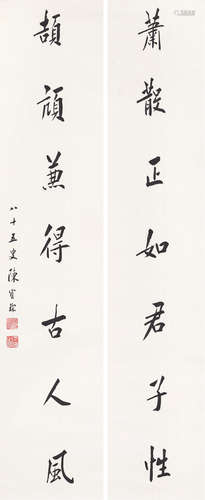 蕭散正如君子性
頡頏兼得古人風
八十五叟陳寶琛